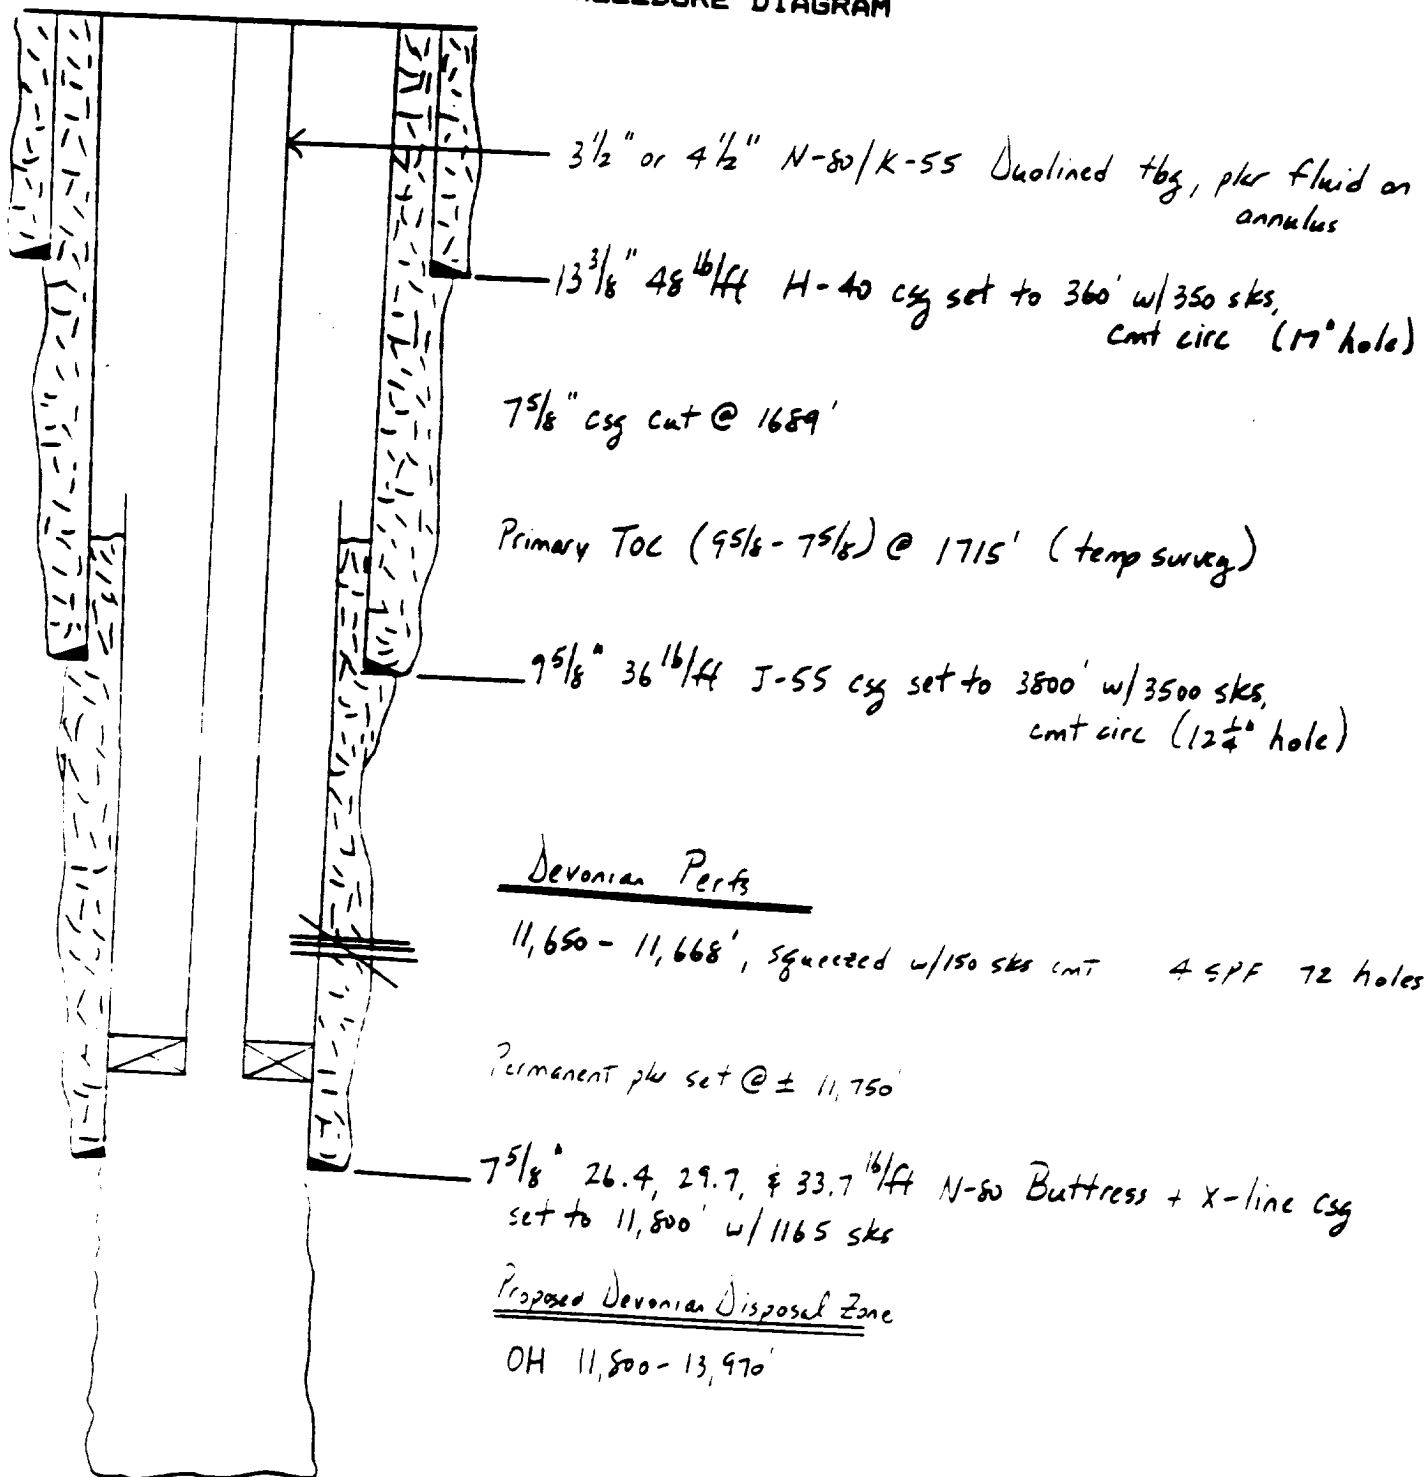 WELLBORE DIAGRAM
3 1/2" or 4 1/2" N-80/K-55 Duolined tbg, pkr fluid on
annulus
13 3/8" 48 lb/ft H-40 csg set to 360' w/350 sks,
cmt circ (17" hole)
7 5/8" csg cut @ 1689'
Primary TOC (9 5/8 - 7 5/8) @ 1715' (temp survey)
9 5/8" 36 lb/ft J-55 csg set to 3800' w/3500 sks,
cmt circ (12 1/4" hole)
Devonian Perfs
11,650 - 11,668', squeezed w/150 sks cmt 4 SPF 72 holes
Permanent pkr set @ ± 11,750'
7 5/8" 26.4, 29.7, & 33.7 lb/ft N-80 Buttress + X-line csg
set to 11,800' w/1165 sks
Proposed Devonian Disposal Zone
OH 11,800 - 13,970'